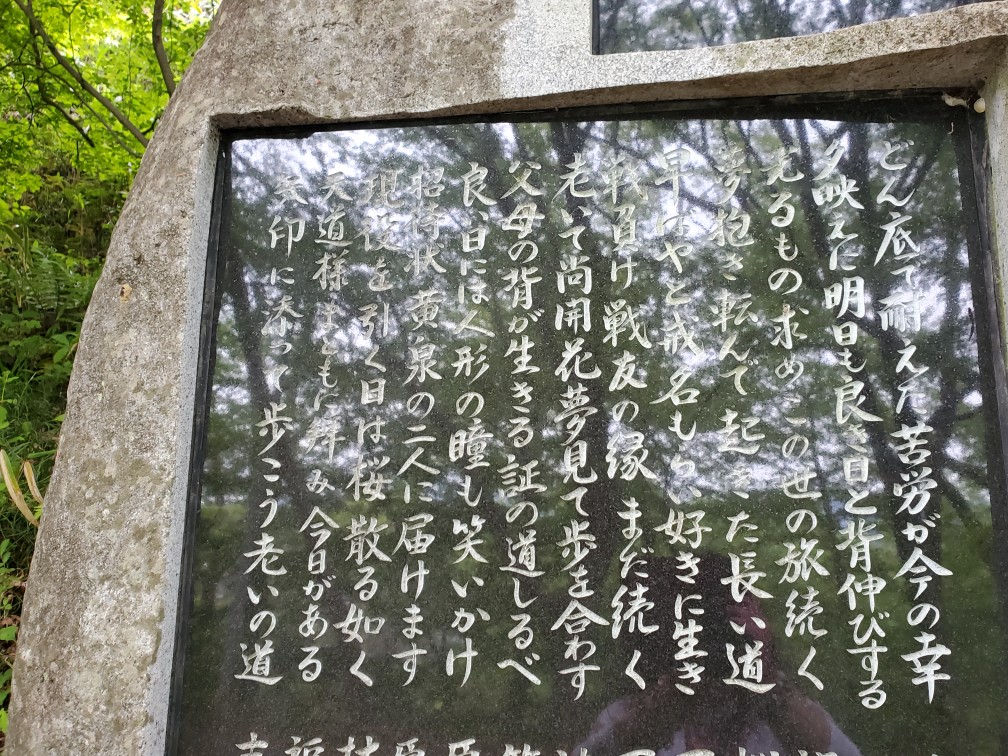 どん底で耐えた苦労が今の幸
夕映えに明日も良き日と背伸びする
光るもの求めこの世の旅続く
夢抱き転んで起きた長い道
早ばやと戒名もらい好きに生き
戦負け戦友の縁まだ続く
老いて尚開花夢見て歩を合わす
父母の背が生きる証の道しるべ
良い日には人形の瞳も笑いかけ
招待状黄泉の二人に届けます
現役を引く日は桜散る如く
天道様まともに拝み今日がある
矢印に添って歩こう老いの道